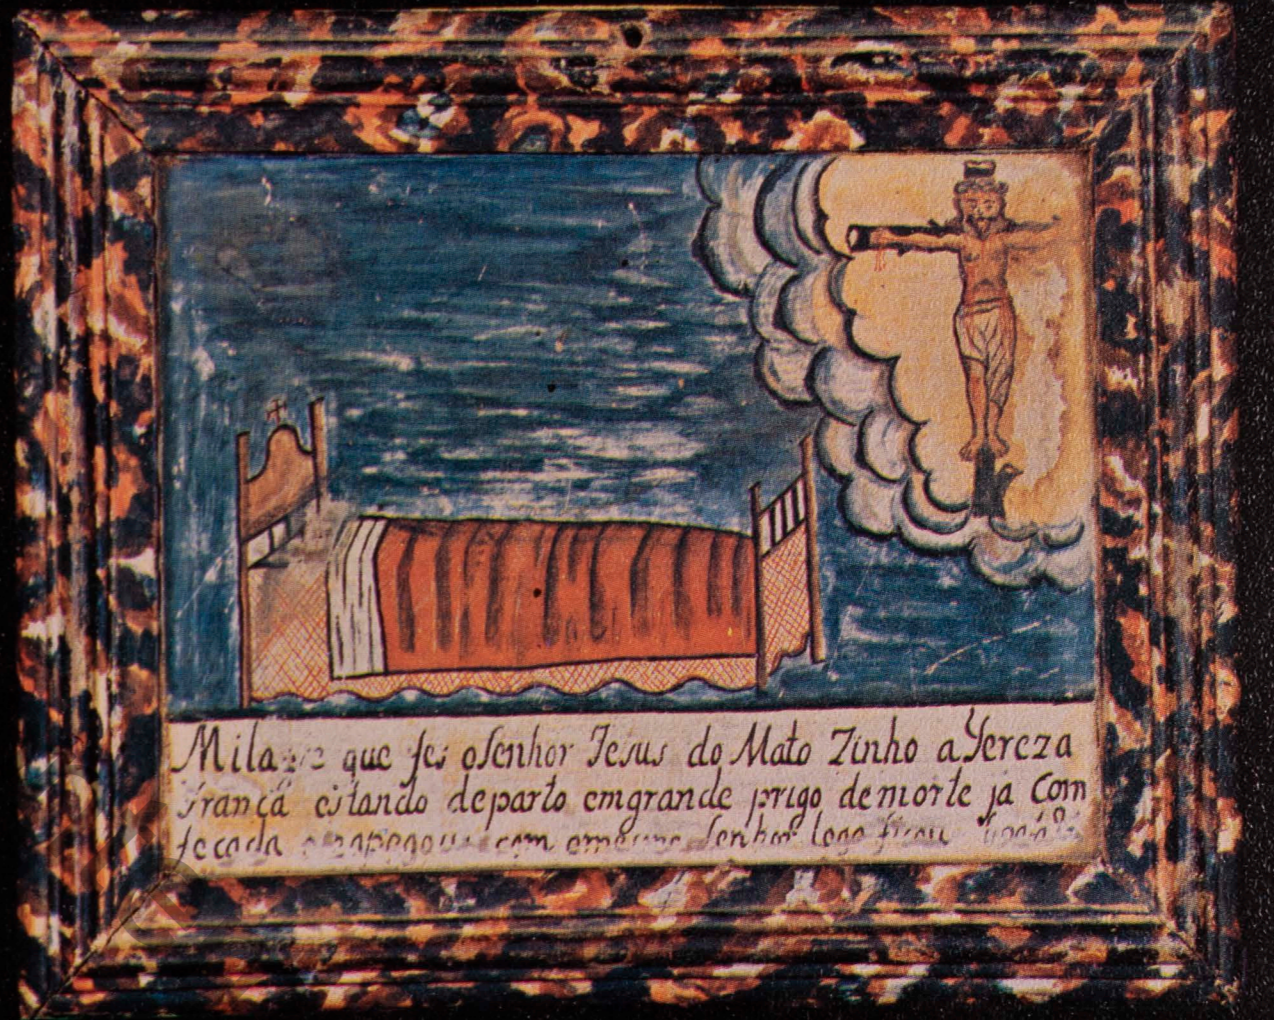 Mila que fes oSenhor Jesus do Mato Zinho a Tereza
França estando departo emgrande prigo demorte ja Com
fecada com Senhor logo ficou